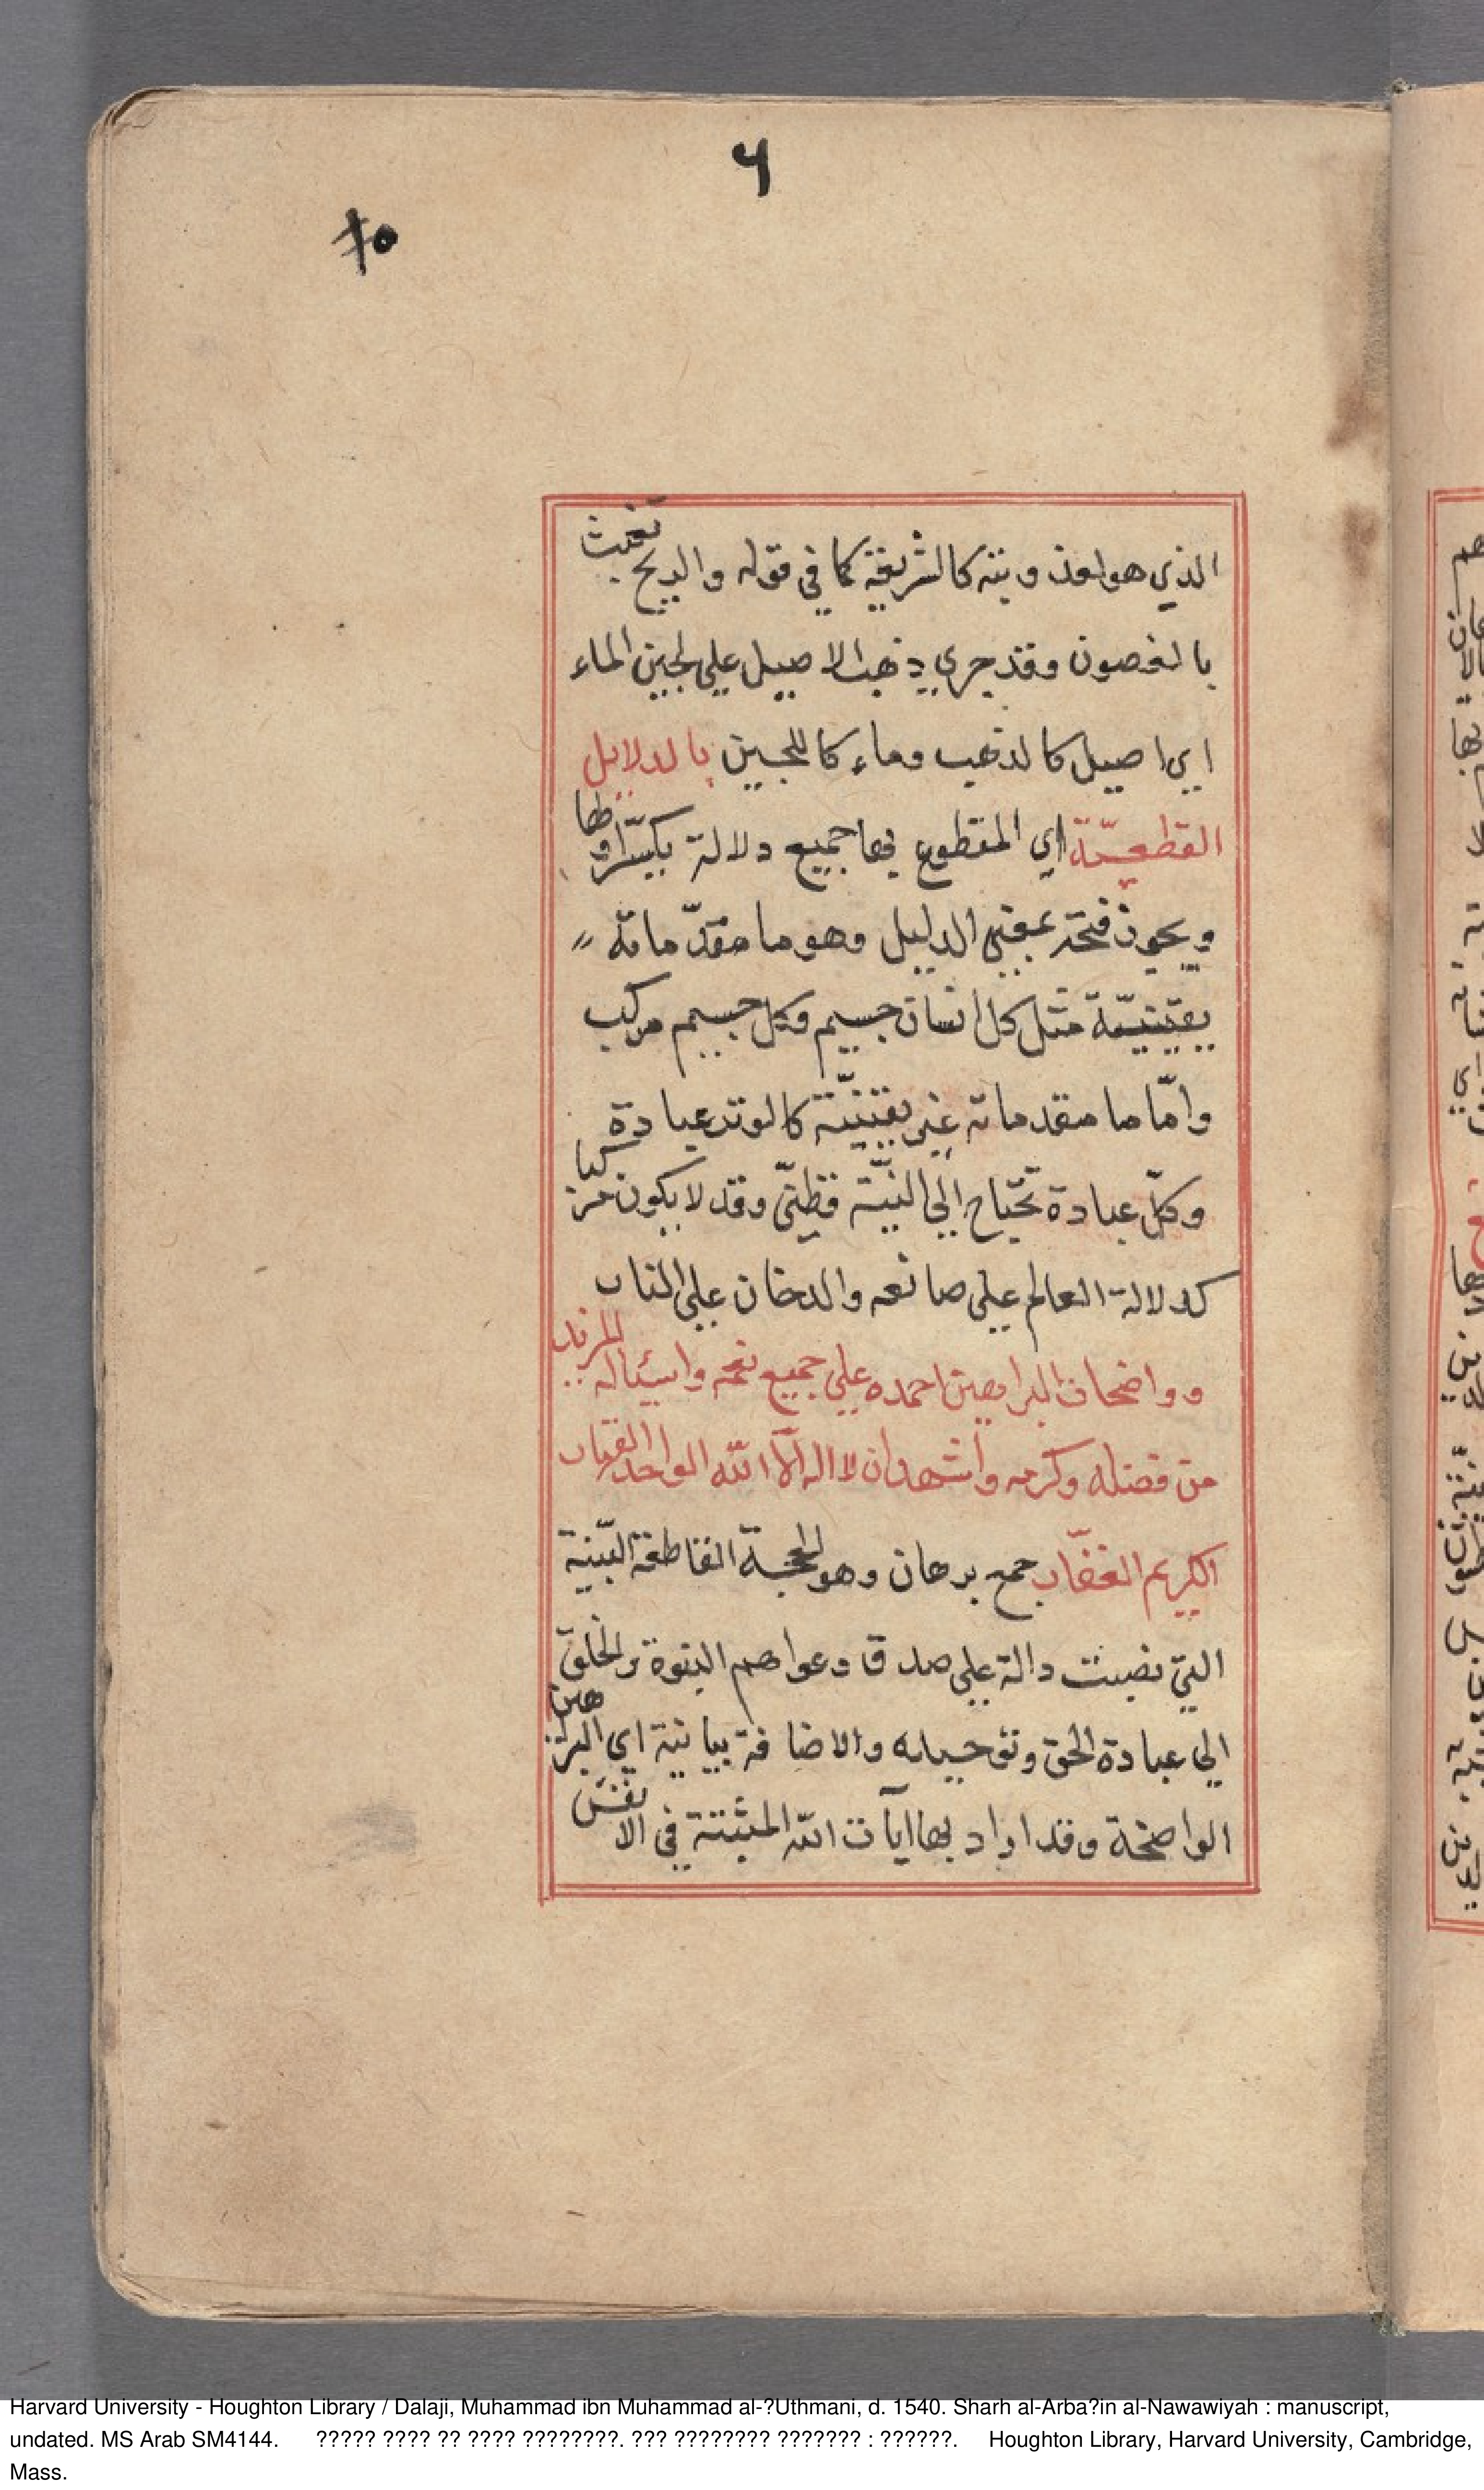 ٦
٥
الذي هو لعذوبته كالشريعة كما في قوله والريح تعبث
بالغصون وقد جري ذهب الاصيل علي لجين الماء
اي اصيل كالذهب وماء كاللجين بالدلايل
القطعيّة اي المقطوع بها جميع دلالة بكسر
ويجوز فتحه بمعني الدليل وهو ما مقدّماته
يقينيّة مثل كل انسان جسيم وكل جسيم مركب
وامّا ما مقدماته غير يقينيّة كالوتر عبادة
وكلّ عبادة تحتاج الي النيّة فظنّي وقد لا يكون مركبا
كدلالة العالم علي صانعه والدخان علي النار
وواضحات البراهين احمده علي جميع نعمه واسئاله المزيد
من فضله وكرمه واشهد ان لا اله الّا الله الواحد القهار
الكريم الغفّار جمع برهان وهو الحجة القاطعة البيّنة
التي نصبت دالة علي صدق دعواهم النبوة والخلق
الي عبادة الحق وتوحيده والاضافة بيانية اي البراهين
الواضحة وقد اراد بها آيات الله المثبتة في الانفس
Harvard University - Houghton Library / Dalaji, Muhammad ibn Muhammad al-?Uthmani, d. 1540. Sharh al-Arba?in al-Nawawiyah : manuscript,
undated. MS Arab SM4144. ????? ???? ?? ???? ????????. ??? ???????? ??????? : ??????. Houghton Library, Harvard University, Cambridge,
Mass.